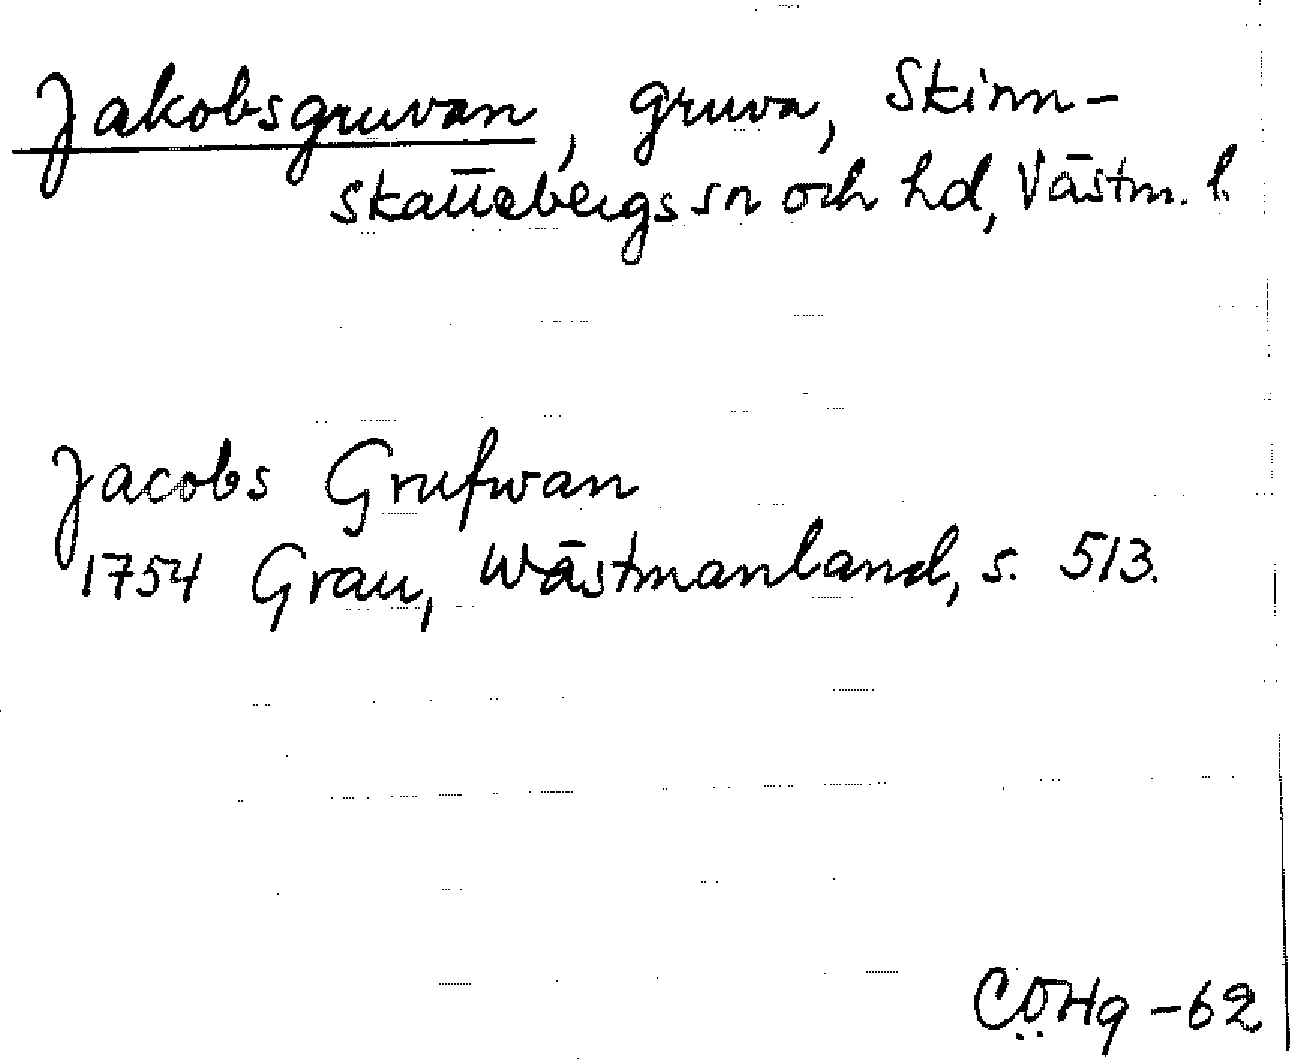 Jakobsgruvan, gruva, Skinn-
skattebergs sn och hd, Västm. l.
Jacobs Grufwan
1754 Grau, Wästmanland, s. 513.
CÖHg -62